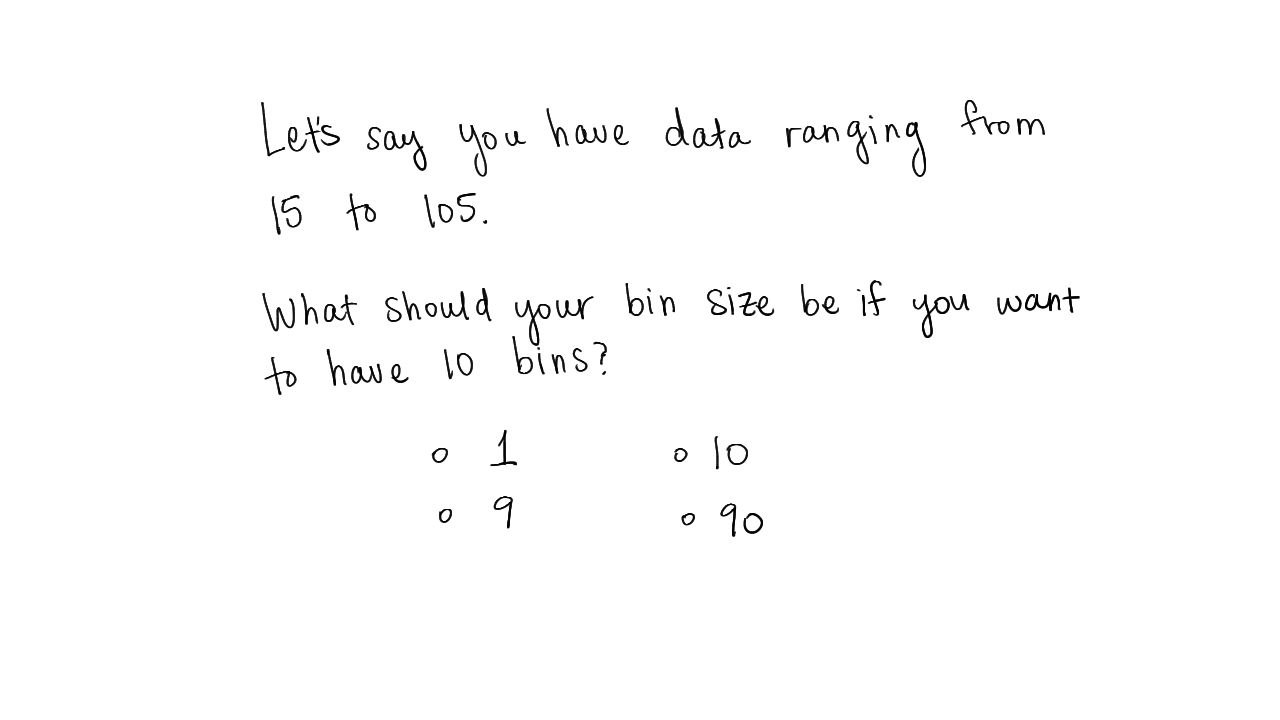 Let's say you have data ranging from
15 to 105.
What should your bin size be if you want
to have 10 bins?
o 1 o 10
o 9 o 90